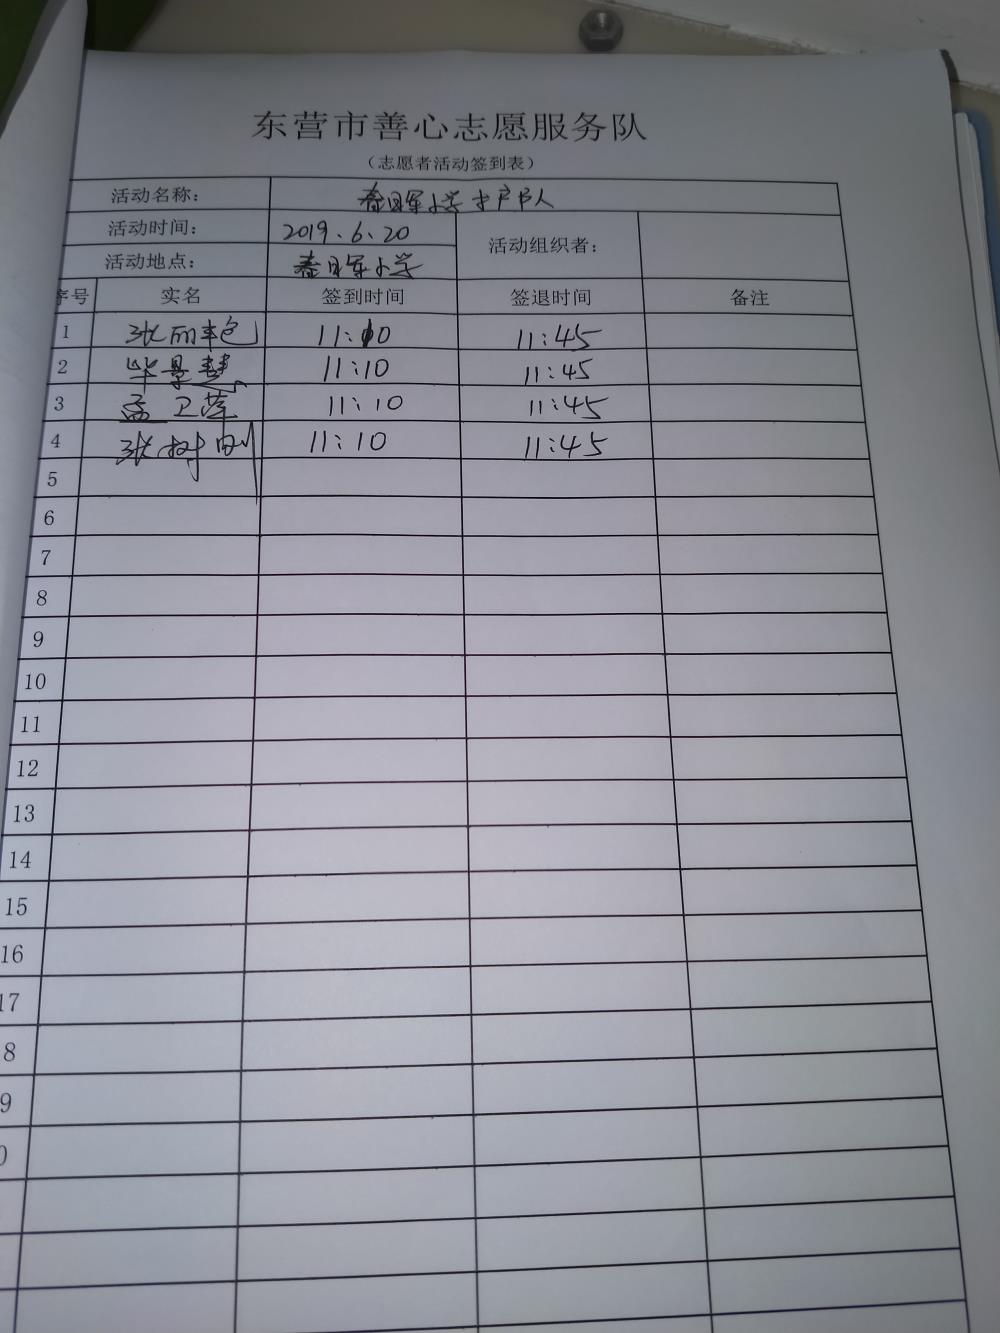 东营市善心志愿服务队
（志愿者活动签到表）
活动名称：
活动时间： 2019.6.20 活动组织者：
活动地点： 小学
序号 实名 签到时间 签退时间 备注
1 张丽艳 11:10 11:45
2 毕景慧 11:10 11:45
3 孟卫萍 11:10 11:45
4 张树刚 11:10 11:45
5
6
7
8
9
10
11
12
13
14
15
16
17
8
9
0